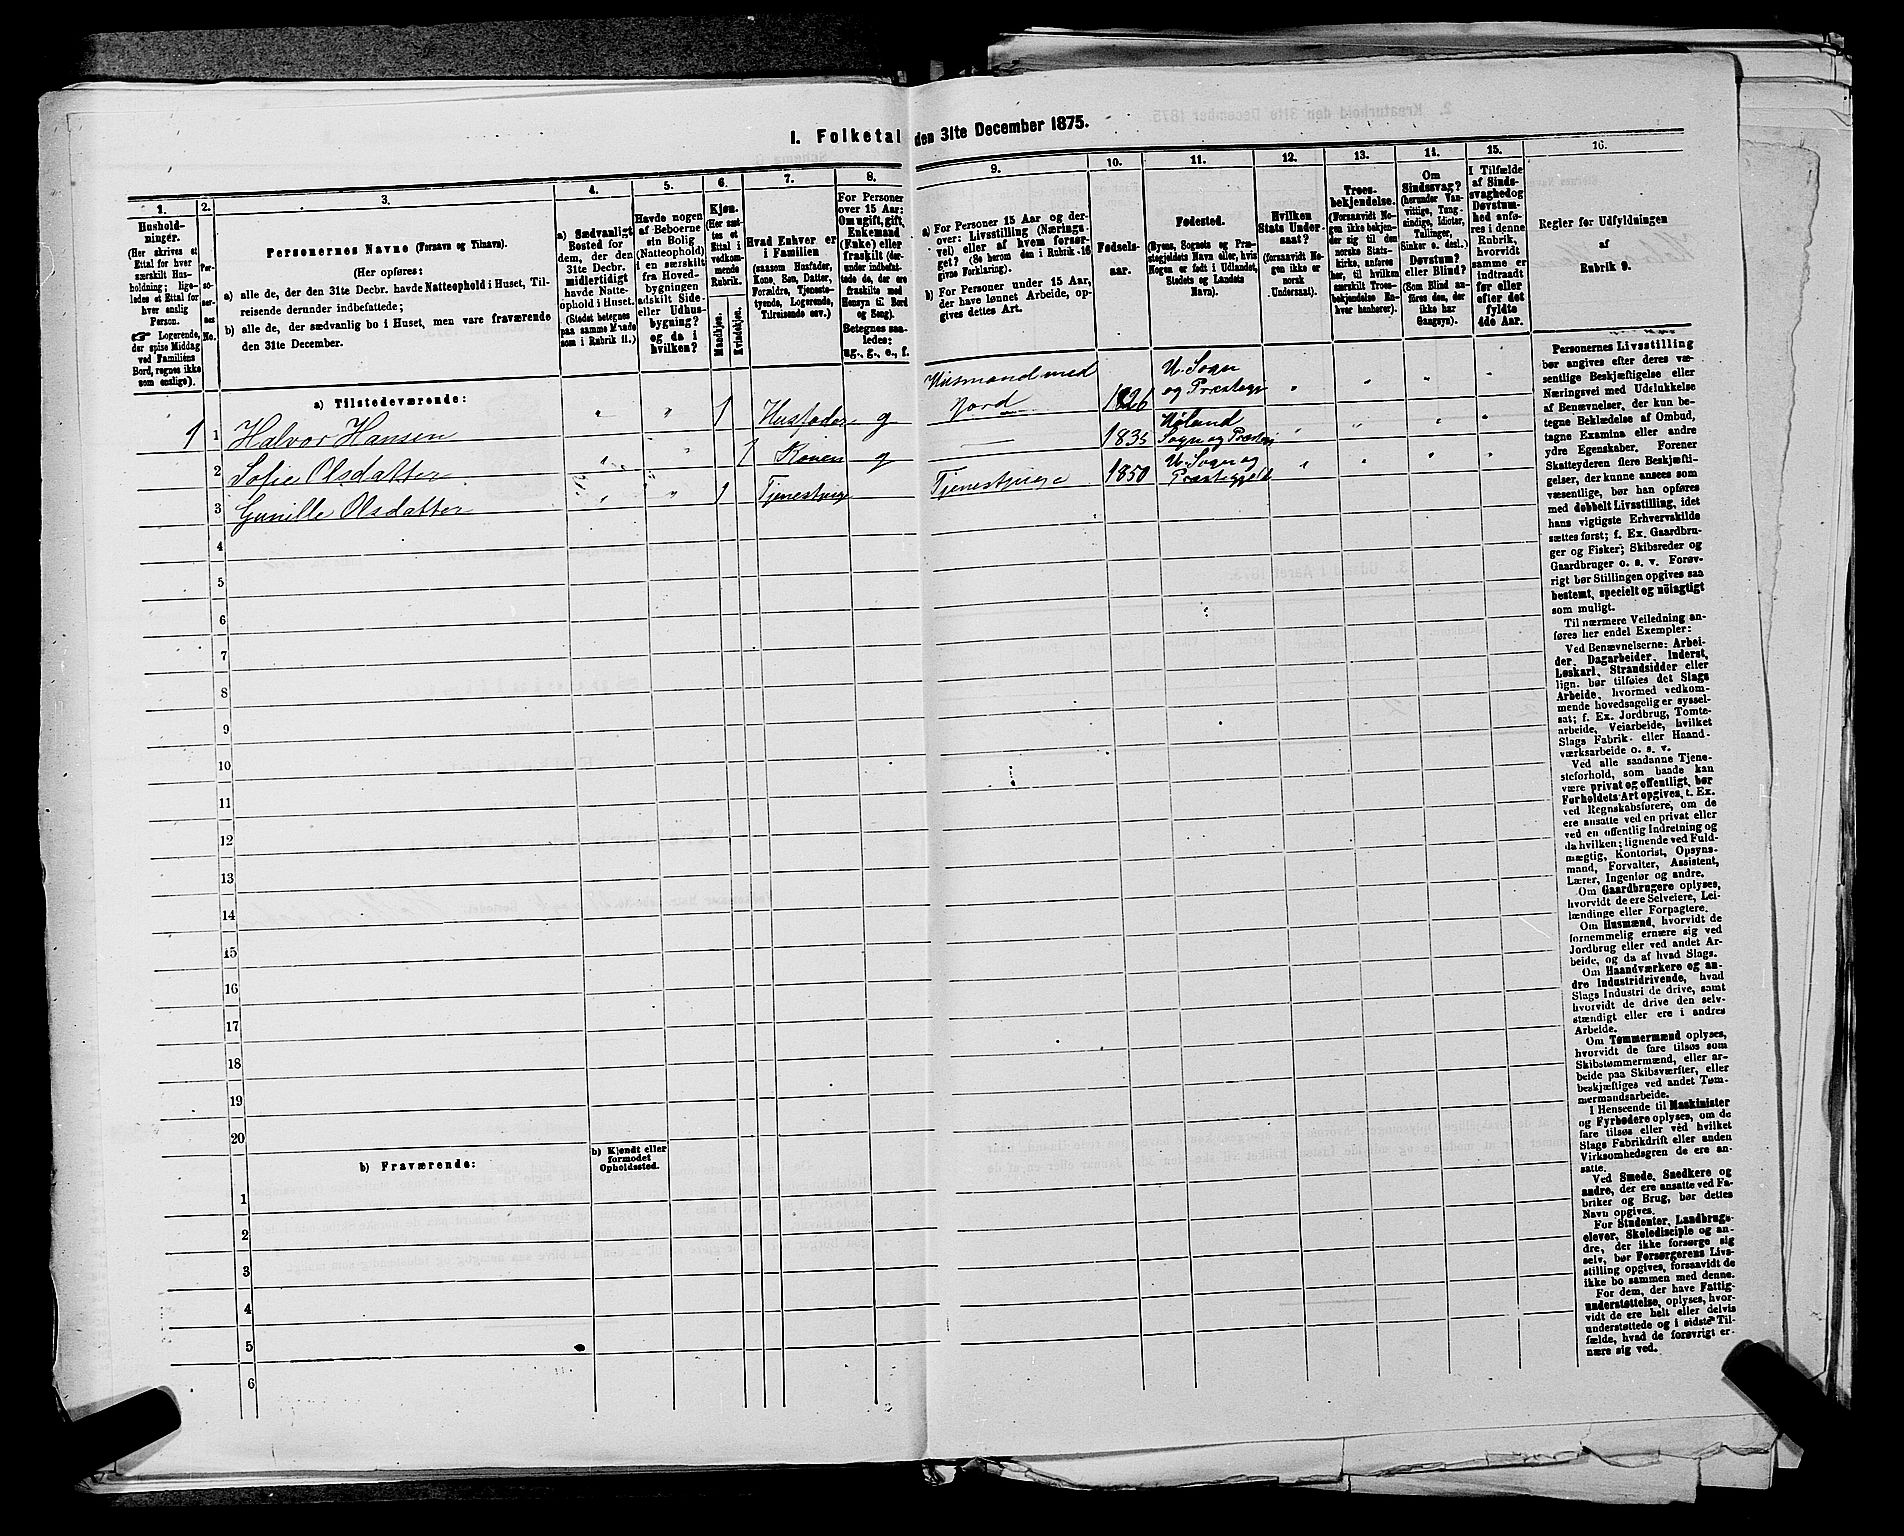 I. Folketal den 31te December 1875.
1.
2.
3.
4.
5.
6.
7.
8.
9.
10.
11.
12.
13.
14.
15.
16.
Husholdninger.
(Her skrives et
Ettal for hver
særskilt Husholdning;
ligeledes et Ettal for
hver enslig
Person.
☞ Logerende,
der spise Middag
ved Familiens
Bord, regnes ikke
som enslige).
Personernes No.
Personernes Navne (Fornavn og Tilnavn).
(Her opføres:
a) alle de, der den 31te Decbr. havde Natteophold i Huset, Tilreisende derunder indbefattede;
b) alle de, der sædvanlig bo i Huset, men vare fraværende
den 31te December.
a) Sædvanligt
Bosted for
dem, der den
31te Decbr.
midlertidigt
havde Natteophold
i Huset.
(Stedet betegnes
paa samme Maade
som i Rubrik 11.)
Havde nogen
af Beboerne
sin Bolig
(Natteophold)
i en særskilt
fra Hovedbygningen
adskilt Side-
eller Udhusbygning?
og da i
hvilken?
Kjøn.
(Her sættes et
Ettal i
vedkommende
Rubrik.
Mandkjøn.
Kvindekjøn.
Hvad Enhver er
i Familien
(saasom Husfader,
Kone, Søn, Datter,
Forældre, Tjenestetyende, Logerende,
Tilreisende osv.)
For Personer
over 15 Aar:
Om ugift, gift,
Enkemand
(Enke) eller
fraskilt (derunder indbefattede de, der ere
fraskilte med
Hensyn til Bord
og Seng).
Betegnes saaledes:
ug., g., e., f.
a) For Personer 15 Aar og derover: Livsstilling (Næringsvei) eller af hvem forsørget? (Se herom den i Rubrik 16
givne Forklaring).
b) For Personer under 15 Aar,
der have lønnet Arbeide, opgives dettes Art.
Fødselsaar.
Fødested.
(Byens, Sognets og Præstegjeldets Navn eller, hvis
Nogen er født i Udlandet,
Stedets og Landets
Navn).
Hvilken
Stats Undersaat?
(forsaavidt Nogen ikke er
norsk
Undersaat).
Troesbekjendelse.
(Forsaavidt Nogen ikke bekjender sig til den
norske Statskirke, anføres
her, til hvilken
særskilt Troesbekjendelse Enhver hanhører).
Om
Sindssvag?
(herunder Vanvittige, Tungsindige, Idioter,
Tullinger,
Sinker o. desl.)
Døvstum?
eller Blind?
(Som Blind anføres den, der
ikke har
Gangsyn).
I Tilfælde
af Sindssvaghed og
Døvstumhed anføres i denne
Rubrik,
hvorvidt
samme er
indtraadt
før eller
efter det
fyldte
4de Aar.
Regler før Udfyldningen
af
Rubrik 9.
a) Tilstedeværende:
1 1 Halvor Hansen " " 1 Husfader g Husmand med Jord 1826 U. Sogn og Præstegj " " " "
2 Sofie Olsdatter " " 1 Konen g — 1835 Høland Sogn og Præstegj " " " "
3 Gunille Olsdatter " " 1 Tjenestpige Tjenestpige 1850 U. Sogn og Præstegjeld " " " "
4
5
6
7
8
9
10
11
12
13
14
15
16
17
18
19
20
b) Fraværende:
b) Kjendt eller
formodet
Opholdssted.
1
2
3
4
5
6
Personernes Livsstilling
bør angives efter deres væsentlige Beskjæftigelse eller
Næringsvei med Udelukkelse
af Benævnelser, der kun betegne Beklædelse af Ombud,
tagne Examina eller andre
ydre Egenskaber. Forener
Skatteyderen flere Beskjæftigelser, der kunne ansees som
væsentlige, bør han opføres
med dobbelt Livsstilling, idet
hans vigtigste Erhvervskilde
sættes først; f. Ex. Gaardbruger og Fisker; Skibsreder og
Gaardbruger o. s. v. Forøvrigt bør Stillingen opgives saa
bestemt, specielt og nøiagtigt
som muligt.
Til nærmere Veiledning anføres her endel Exempler:
Ved Benævnelserne: Arbeider, Dagarbeider, Inderst,
Løskarl, Strandsidder eller
lign. bør tilføies det Slags
Arbeide, hvormed vedkommende hovedsagelig er sysselsat; f. Ex. Jordbrug, Tomtearbeide, Veiarbeide, hvilket
Slags Fabrik- eller Haandværksarbeide o. s. v.
Ved alle saadanne Tjenesteforhold, som baade kan
være privat og offentligt, bør
Forholdets Art opgives, t. Ex.
ved Regnskabsførere, om de
ere ansatte ved en privat eller
ved en offentlig Indretning og
da hvilken; lignende ved Fuldmægtig, Kontorist, Opsynsmand, Forvalter, Assistent,
Lærer, Ingeniør og andre.
Om Gaardbrugere oplyses,
hvorvidt de ere Selveiere, Leilændinge eller Forpagtere.
Om Husmænd, hvorvidt de
fornemmelig ernære sig ved
Jordbrug eller ved andet Arbeide, og da af hvad Slags.
Om Haandværkere og andre Industridrivende, hvad
Slags Industri de drive, samt
hvorvidt de drive den selvstændigt eller ere i andres
Arbeide.
Om Tømmermænd oplyses,
hvorvidt de fare tilsøs som
Skibstømmermænd, eller arbeide paa Skibsværfter, eller
beskjæftiges ved andet Tømmermandsarbeide.
I Henseende til Maskinister
og Fyrbødere oplyses, om de
fare tilsøs eller ved hvilket
Slags Fabrikdrift eller anden
Virksomhedsgren de ere ansatte.
Ved Smede, Snedkere og
andre, der ere ansatte ved Fabriker og Brug, bør dettes
Navn opgives.
For Studenter, Landbrugselever, Skoledisciple og andre, der ikke forsørge sig
selv, bør Forsørgerens Livsstilling opgives, forsaavidt de
ikke bo sammen med denne.
For dem, der have Fattigunderstøttelse, oplyses, hvorvidt de ere helt eller delvis
understøttede og i sidste Tilfælde, hvad de forøvrigt ernære sig ved.